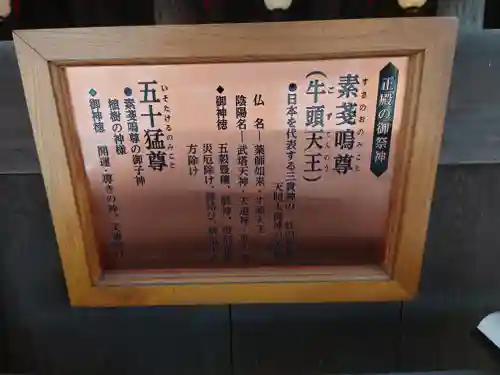 正殿の御祭神
すさのおのみこと
素戔嗚尊
ごずてんのう
(牛頭天王)
●日本を代表する三貴神の
天照大御神の
仏 名―薬師如来・牛頭天王
陰陽名―武塔天神・天道神・
◆御神徳 五穀豊穣、
災厄除け、縁結び、
方除け
いそたけるのみこと
五十猛尊
●素戔嗚尊の御子神
樹の神様
◆御神徳 開運・導きの神、